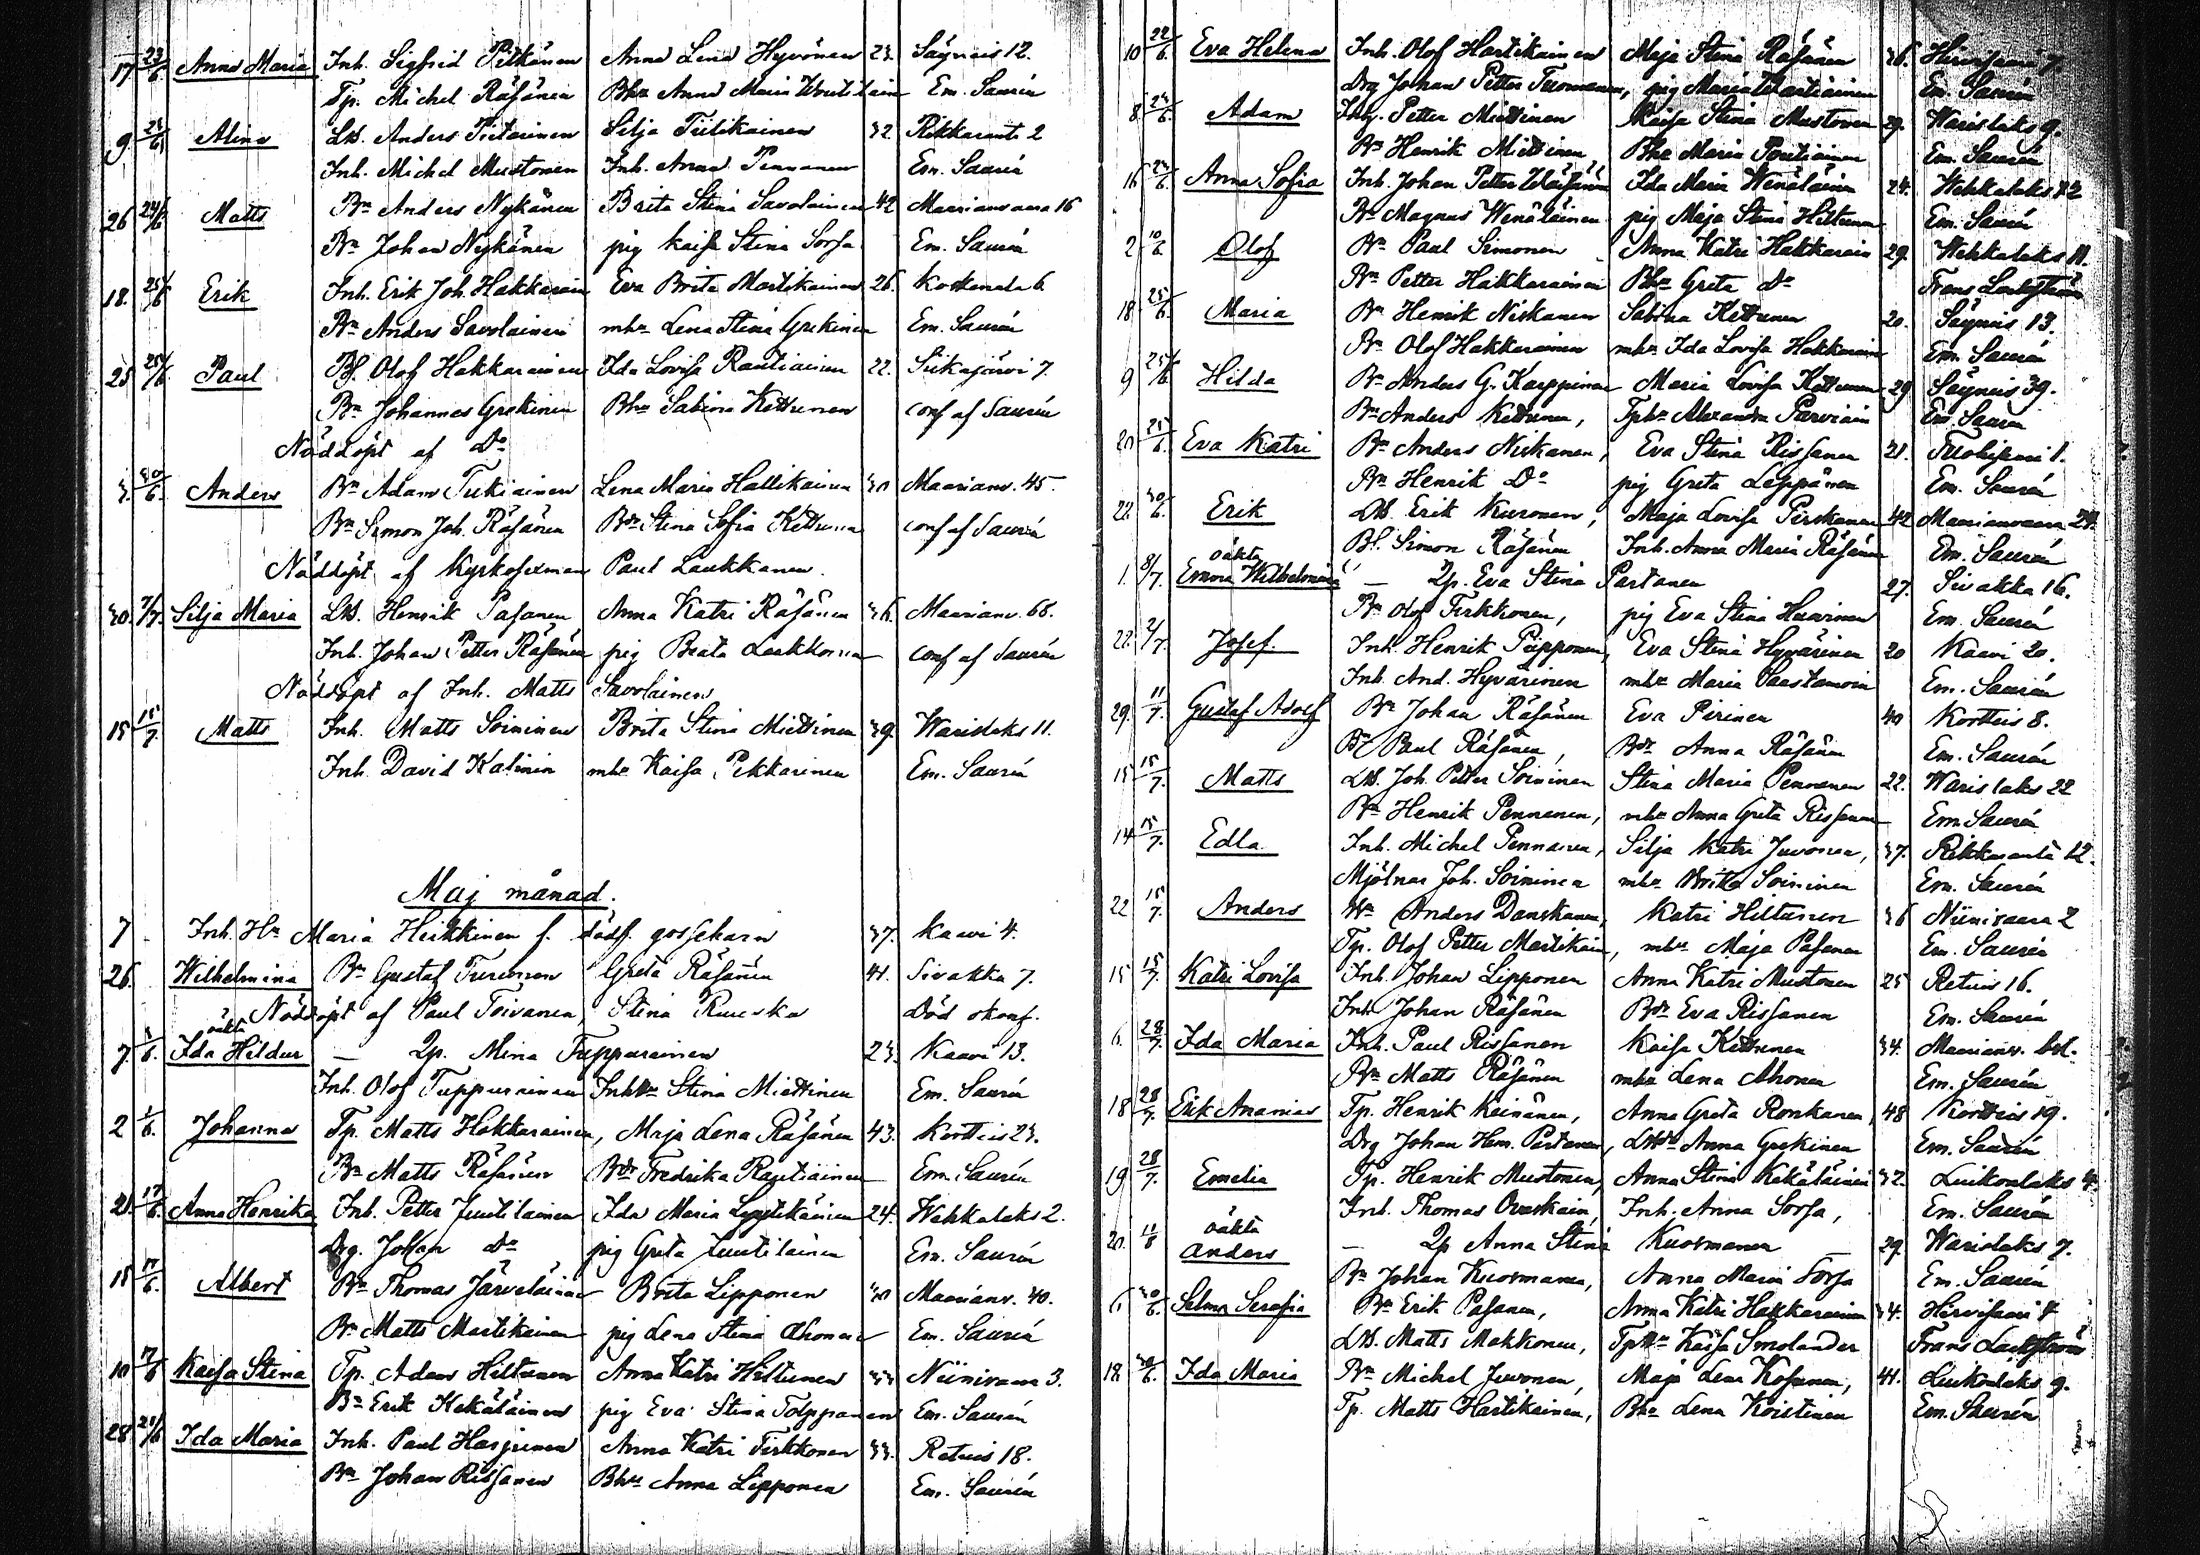 17 23/6 Anna Maria Inh. Sigfrid Pitkänen Anna Lena Hyvönen 23. Säyneis 12.
Tp. Michel Räsänen Bhr Anna Maria Em. Saurén
9 24/6 Alina Ls. Anders Pietarinen Silja Tiilikainen 32. Rikkaranta 2
Inh. Michel Mustonen Inh. Anna Pennanen Em. Saurén
26 24/6 Matts Bn Anders Nykänen Brita Stina Savolainen 42 Maarianvaara 16
Bn Johan Nykänen pig Kaisa Stina Sorsa Em. Saurén
18. 25/6 Erik Inh. Erik Joh. Hakkarain Eva Brita Martikainen 26. Koskenala 6
Bn Anders Savolainen mhr Lena Stina Grekinen Em. Saurén
25 25/6 Paul Bf. Olof Hakkarainen Ida Lovisa Rautiainen 22. Siikajärvi 7
Bn Johannes Grekinen Bhr Sabina Kettunen conf af Saurén
Nöddöpt af Do
3. 30/6. Anders Bn Adam Tukiainen Lena Maria Hallikainen 30 Maarianv. 45.
Bn Simon Joh. Räsänen Bdr Stina Sofia Kettunen conf af Saurén
Nöddöpt af Kyrkosexman Paul Laukkanen.
30. 7/7. Silja Maria Ls. Henrik Pasanen Anna Katri Räsänen 36. Maarianv. 68.
Inh. Johan Petter Räsänen pig Beata Laukkanen conf af Saurén
Nöddöpt af Inh. Matts Savolainen
15 15/7. Matts Inh. Matts Soininen Brita Stina Miettinen 39. Warislaks 11.
Inh. David Kalinin mhr Kaisa Pekkarinen Em. Saurén
Maj månad.
7 Inh. Hr Maria Heikkinen f. dödf. gossebarn 37. Kaavi 4.
26. Wilhelmina Bn Gustaf Turunen Greta Räsänen 41. Sivakka 7.
Nöddöpt af Paul Toivanen, Stina Ruuska Död okonf.
oäkta
7. 3/6. Ida Hildur — Qp. Mina Tuppurainen 23. Kaavi 13.
Inh. Olof Tuppurainen Inhhr Stina Miettinen Em. Saurén
2 1/6. Johanna Tp. Matts Hakkarainen, Maja Lena Räsänen 43. Kortteis 23.
Bn Matts Räsänen Bdr Fredrika Rautiainen Em. Saurén
21. 17/6. Anna Henrika Inh. Petter Juutilainen Ida Maria Lyytikäinen 24. Wehkalaks 2.
Drg. Johan Do pig Greta Juutilainen Em. Saurén
15 17/6. Albert Bn Thomas Järveläinen Brita Lipponen 30 Maarianv. 40.
Bn Matts Martikainen pig Lena Stina Ahonen Em. Saurén
10 17/6 Kaisa Stina Tp. Adam Hiltunen Anna Katri Hiltunen 33 Niinivaara 3.
Bn Erik Kekäläinen pig Eva Stina Tolppanen Em. Saurén
28 Ida Maria Inh. Paul Harjunen Anna Katri Tirkkonen 33. Retuis 18.
Bn Johan Rissanen Bhr Anna Lipponen Em. Saurén
10 22/6. Eva Helena Inh. Olof Hartikainen Maja Stina Räsänen 36. Hirvisaari 7.
Drg Johan Petter Tuomanen, pig Maria Em. Saurén
8 24/6. Adam Inh. Petter Miettinen Kaisa Stina Mustonen 29. Warislaks 9.
Bn Henrik Miettinen Bhr Maria Poutiainen Em. Saurén
16 24/6. Anna Sofia Inh. Johan Petter Ida Maria Wenäläinen 24. Wehkalaks 22
Bn Magnus Wenäläinen pig Maja Stina Hiltunen Em. Saurén
2 Olof Bn Paul Simonen Anna Katri Hakkarain 29. Wehkalaks 11.
Bn Petter Hakkarainen Bhr Greta Do Frans
18 25/6. Maria Bn Henrik Niskanen Sabina Kettunen 20. Säyneis 13.
Bn Olof Hakkarainen mhr Ida Lovisa Hakkarain Em. Saurén
9 25/6. Hilda Bn Anders G. Karppinen Maria Lovisa Kettunen 29 Säyneis 39.
Bn Anders Kettunen, Tphr Alexandra Parviain Em. Saurén
20 25/6. Eva Katri Bn Anders Niskanen, Eva Stina Rissanen 21. 1.
Bn Henrik Do pig Greta Leppänen Em. Saurén
22. 30/6. Erik Ls. Erik Kuronen, Maja Lovisa Pirskanen 42 Maarianvaara 24.
Bf. Simon Räsänen Inh. Anna Maria Räsänen Em. Saurén
oäkta
1. 8/7. Emma Wilhelmina — Qp. Eva Stina Partanen 27. Sivakka 16.
Bn Olof Tirkkonen, pig Eva Stina Em. Saurén
22. 2/7. Josef. Inh. Henrik Piipponen, Eva Stina Hyvärinen 20 Kaavi 20.
Inh. And. Hyvärinen mhr Maria Saastamoin Em. Saurén
29. 11/7. Gustaf Adolf Bn Johan Räsänen Eva Pirinen 40 Kortteis 8.
Bn Paul Räsänen, Bdr Anna Räsänen Em. Saurén
15 15/7. Matts Ls. Joh. Petter Soininen Stina Maria Pennanen 22. Warislaks 22
Bn Henrik Pennanen, mhr Anna Greta Rissanen Em Saurén
14 15/7. Edla Inh. Michel Pennanen, Silja Katri Juvonen, 37. Rikkaranta 12.
Mjölnar Joh. Soininen mhr Britta Soininen Em. Saurén
22 15/7. Anders Bn Anders Danskanen, Katri Hiltunen 36 Niinivaara 2
Tp. Olof Petter Martikain, mhr Maja Pasanen Em. Saurén
15 15/7. Katri Lovisa Inh. Johan Lipponen Anna Katri Mustonen 25 Retuis 16.
Inh Johan Räsänen Bdr Eva Rissanen Em. Saurén
6. 28/7. Ida Maria Inh. Paul Rissanen Kaisa Kettunen 34. Maarianv.
Bn Matts Räsänen mhr Lena Ahonen Em. Saurén
18 28/7. Erik Ananias Tp. Henrik Keinänen, Anna Greta Ronkanen, 48 Kortteis 19.
Drg Johan Hem. Partanen, Anna Grekinen Em. Saurén
19 28/7. Emelia Tp. Henrik Mustonen, Anna Stina Kekäläinen 32. Luikonlaks 4.
Inh. Thomas Ovaskain, Inh. Anna Sorsa, Em. Saurén
oäkta
20. 11/8 Anders — Qp Anna Stina Kuosmanen — 29. Warislaks 7.
Bn Johan Kuosmanen, Anna Maria Sorsa Em. Saurén
6. 30/6. Selma Serafia Bn Erik Pasanen, Anna Katri Hakkarainen 34. Hirvisaari 4
Ls. Matts Makkonen, Tphr Kaisa Smolander Frans
18. 30/6. Ida Maria Bn Michel Juvonen, Maja Lena Kosunen, 41. Luikonlaks 9.
Tp. Matts Hartikainen, Bhr Lena Koistinen Em. Saurén